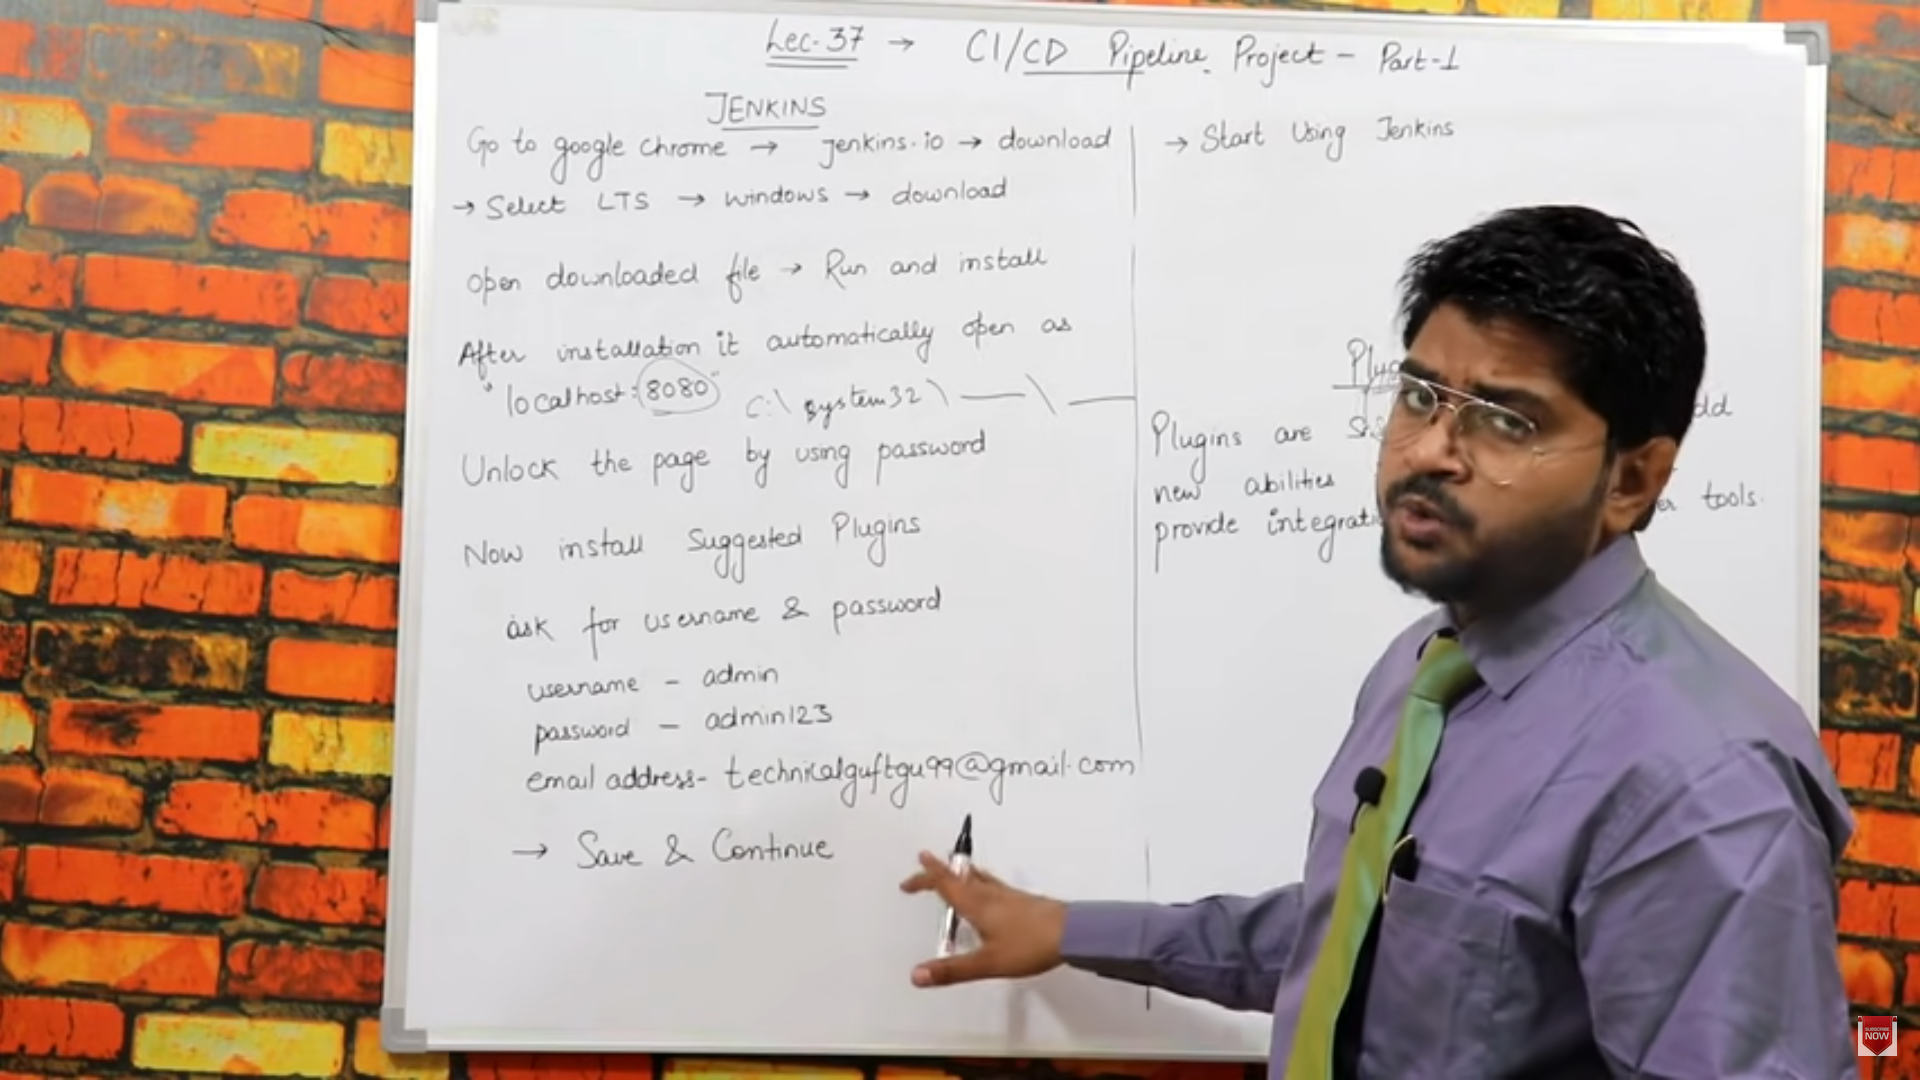 Lec-37 → CI/CD Pipeline Project - Part-1
JENKINS
Go to google chrome → jenkins.io → download
→ Select LTS → windows → download
open downloaded file → Run and install
After installation it automatically open as
"localhost:8080"
C:\system32\ — \ —
Unlock the page by using password
Now install Suggested Plugins
ask for username & password
username - admin
password - admin123
email address- technicalguftgu99@gmail.com
→ Save & Continue
→ Start Using Jenkins
Plugins are
new abilities
provide tools.
SUBSCRIBE
NOW